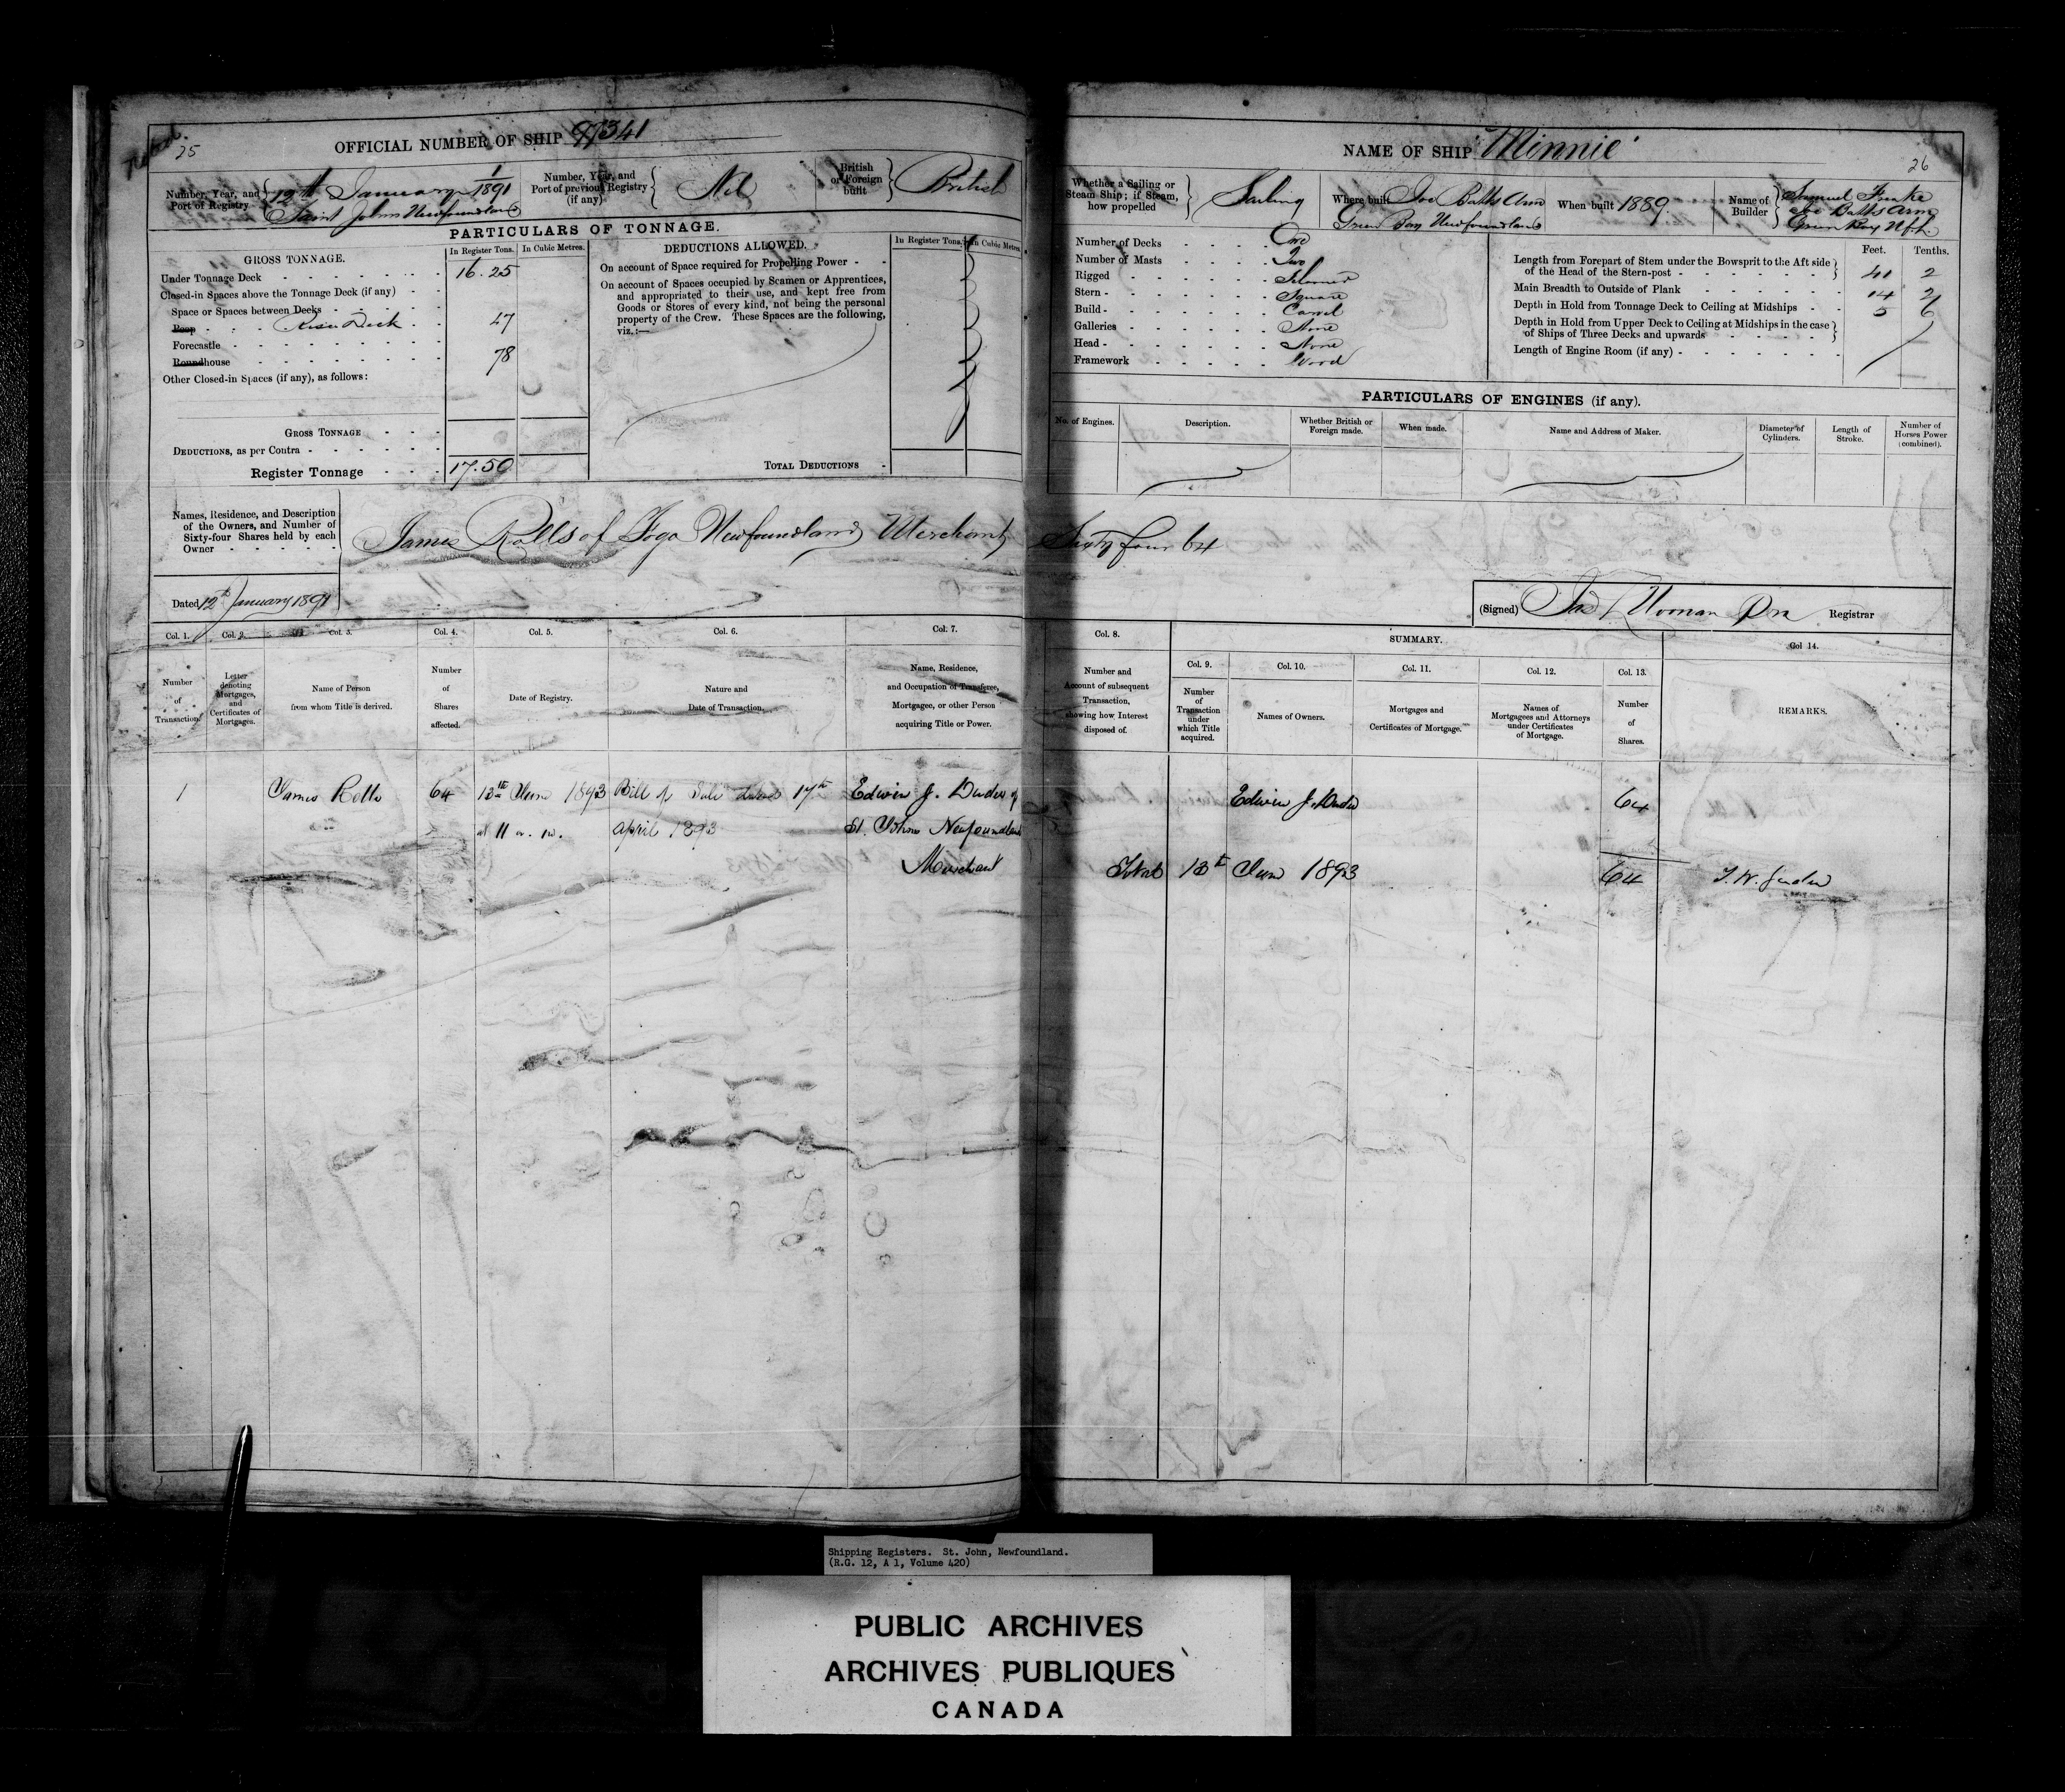 25
OFFICIAL NUMBER OF SHIP 97341
Number, Year, and Port of Registry
1/1891
12th January
Saint Johns Newfoundland
Number, Year, and Port of previous Registry (if any)
Nil
British or Foreign built
British
PARTICULARS OF TONNAGE.
GROSS TONNAGE.
In Register Tons.
In Cubic Metres.
Under Tonnage Deck 16.25
Closed-in Spaces above the Tonnage Deck (if any)
Space or Spaces between Decks
Poop Rise Deck 47
Forecastle
Roundhouse 78
Other Closed-in Spaces (if any), as follows:
GROSS TONNAGE
DEDUCTIONS, as per Contra
Register Tonnage 17.50
DEDUCTIONS ALLOWED.
In Register Tons.
In Cubic Metres.
On account of Space required for Propelling Power
On account of Spaces occupied by Seamen or Apprentices,
and appropriated to their use, and kept free from
Goods or Stores of every kind, not being the personal
property of the Crew. These Spaces are the following,
viz.:—
TOTAL DEDUCTIONS
Names, Residence, and Description
of the Owners, and Number of
Sixty-four Shares held by each
Owner
James Rolls of Fogo Newfoundland Merchant Sixty four 64
Dated 12th January 1891
NAME OF SHIP "Minnie"
26
Whether a Sailing or Steam Ship; if Steam, how propelled
Sailing
Where built Joe Batts Arm
Green Bay Newfoundland
When built 1889
Name of Builder
Samuel Freake
Joe Batts Arm
Green Bay Nfld
Number of Decks One
Number of Masts Two
Rigged Schooner
Stern Square
Build Carvel
Galleries None
Head None
Framework Wood
Feet. Tenths.
Length from Forepart of Stem under the Bowsprit to the Aft side
of the Head of the Stern-post 41 2
Main Breadth to Outside of Plank 14 2
Depth in Hold from Tonnage Deck to Ceiling at Midships 5 6
Depth in Hold from Upper Deck to Ceiling at Midships in the case
of Ships of Three Decks and upwards
Length of Engine Room (if any)
PARTICULARS OF ENGINES (if any).
No. of Engines.
Description.
Whether British or Foreign made.
When made.
Name and Address of Maker.
Diameter of Cylinders.
Length of Stroke.
Number of Horses Power (combined).
(Signed) Registrar
Col. 1. Col. 2. Col. 3. Col. 4. Col. 5. Col. 6. Col. 7. Col. 8. SUMMARY. Col 14.
Col. 9. Col. 10. Col. 11. Col. 12. Col. 13.
Number of Transaction.
Letter denoting Mortgages, and Certificates of Mortgages.
Name of Person from whom Title is derived.
Number of Shares affected.
Date of Registry.
Nature and Date of Transaction.
Name, Residence, and Occupation of Transferee, Mortgagee, or other Person acquiring Title or Power.
Number and Account of subsequent Transaction, showing how Interest disposed of.
Number of Transaction under which Title acquired.
Names of Owners.
Mortgages and Certificates of Mortgage.
Names of Mortgagees and Attorneys under Certificates of Mortgage.
Number of Shares.
REMARKS.
1 James Rolls 64 13th June 1893 Bill of Sale dated 17th Edwin J. Duder of Edwin J. Duder 64
at 11 a.m. April 1893 St. Johns Newfoundland
Merchant Total 13th June 1893 64
Shipping Registers. St. John, Newfoundland.
(R.G. 12, A 1, Volume 420)
PUBLIC ARCHIVES
ARCHIVES PUBLIQUES
CANADA